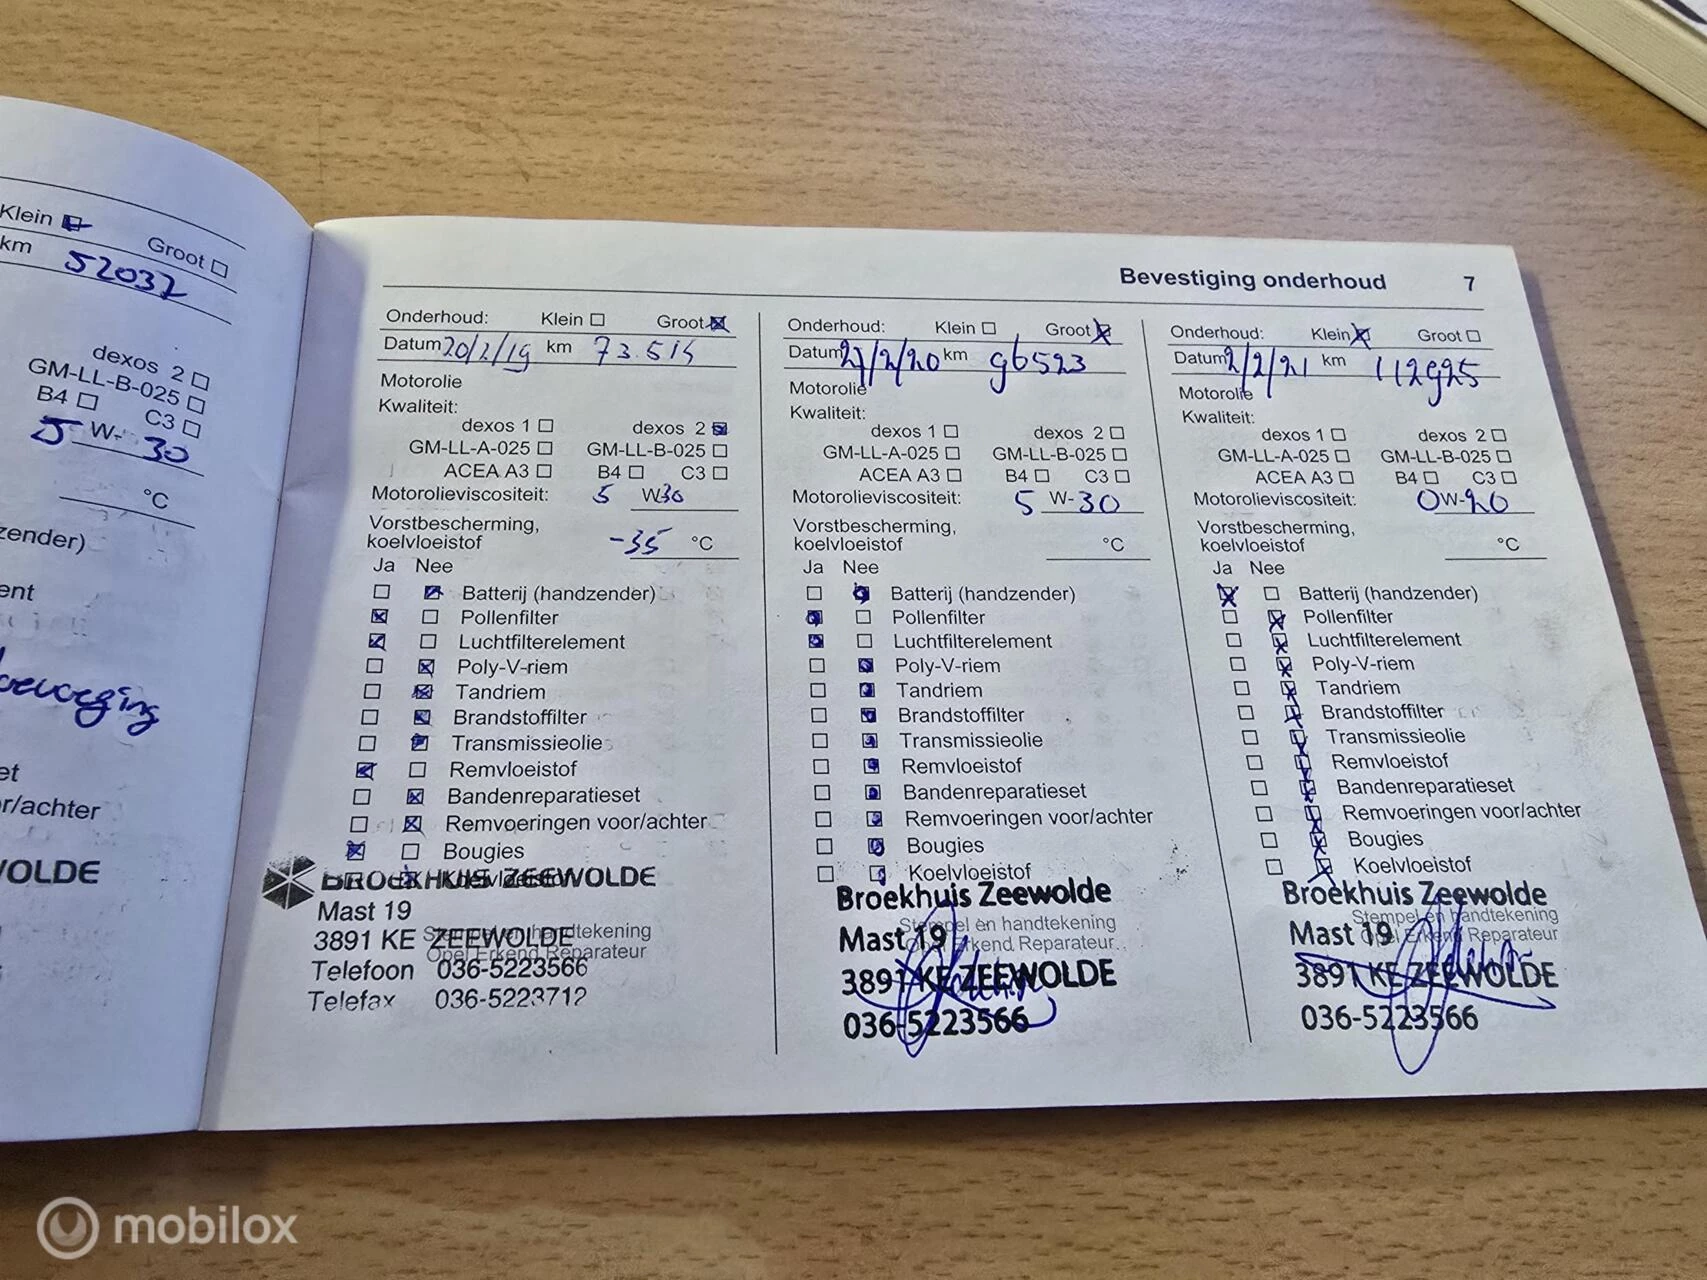 Klein
Groot
km 52037
dexos 2
GM-LL-B-025
B4 C3
5 W- 30
°C
zender)
ent
et
r/achter
WOLDE
Bevestiging onderhoud 7
Onderhoud: Klein Groot
Datum 20/2/19 km 73.514
Motorolie
Kwaliteit:
dexos 1 dexos 2
GM-LL-A-025 GM-LL-B-025
ACEA A3 B4 C3
Motorolieviscositeit: 5 W30
Vorstbescherming,
koelvloeistof -35 °C
Ja Nee
Batterij (handzender)
Pollenfilter
Luchtfilterelement
Poly-V-riem
Tandriem
Brandstoffilter
Transmissieolie
Remvloeistof
Bandenreparatieset
Remvoeringen voor/achter
Bougies
Koelvloeistof
BROEKHUIS ZEEWOLDE
Mast 19
Stempel en handtekening
3891 KE ZEEWOLDE
Opel Erkend Reparateur
Telefoon 036-5223566
Telefax 036-5223712
Onderhoud: Klein Groot
Datum 27/2/20 km 96523
Motorolie
Kwaliteit:
dexos 1 dexos 2
GM-LL-A-025 GM-LL-B-025
ACEA A3 B4 C3
Motorolieviscositeit: 5 W-30
Vorstbescherming,
koelvloeistof °C
Ja Nee
Batterij (handzender)
Pollenfilter
Luchtfilterelement
Poly-V-riem
Tandriem
Brandstoffilter
Transmissieolie
Remvloeistof
Bandenreparatieset
Remvoeringen voor/achter
Bougies
Koelvloeistof
Broekhuis Zeewolde
Stempel en handtekening
Mast 19
Opel Erkend Reparateur
3891 KE ZEEWOLDE
036-5223566
Onderhoud: Klein Groot
Datum 2/2/21 km 112925
Motorolie
Kwaliteit:
dexos 1 dexos 2
GM-LL-A-025 GM-LL-B-025
ACEA A3 B4 C3
Motorolieviscositeit: 0W-20
Vorstbescherming,
koelvloeistof °C
Ja Nee
Batterij (handzender)
Pollenfilter
Luchtfilterelement
Poly-V-riem
Tandriem
Brandstoffilter
Transmissieolie
Remvloeistof
Bandenreparatieset
Remvoeringen voor/achter
Bougies
Koelvloeistof
Broekhuis Zeewolde
Stempel en handtekening
Mast 19
Opel Erkend Reparateur
3891 KE ZEEWOLDE
036-5223566
mobilox